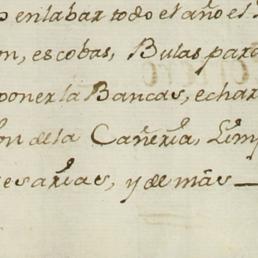 enlabar todo el año el
on, escobas, Bulas para
poner la Bancas, echar
on de la Cañeria, Limp
esarias, y de mas